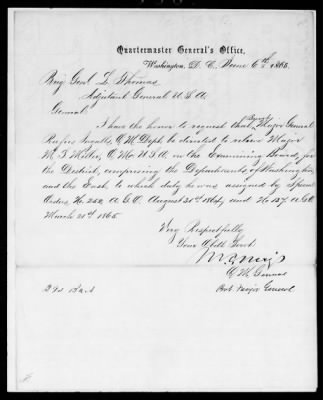 Quartermaster General's Office,
Washington, D. C. June 6th, 1865.
Brig Genl L. Thomas
Adjutant General U.S.A.
General
I have the honor to request that Brevet Major General
Rufus Ingalls, Q.M. Dept. be directed to relieve Major
M. S. Miller, Q. Mr. U.S.A. on the Examining Board for
the District, comprising the Departments of Washington,
and the East, to which duty he was assigned by Special
Orders, No. 252, A.G.O. August 30th 1864, and No 137 A.G.O.
March 21st 1865.
Very Respectfully
Your Obdt Servt
M C Meigs
Q. M. General
Bvt. Major General